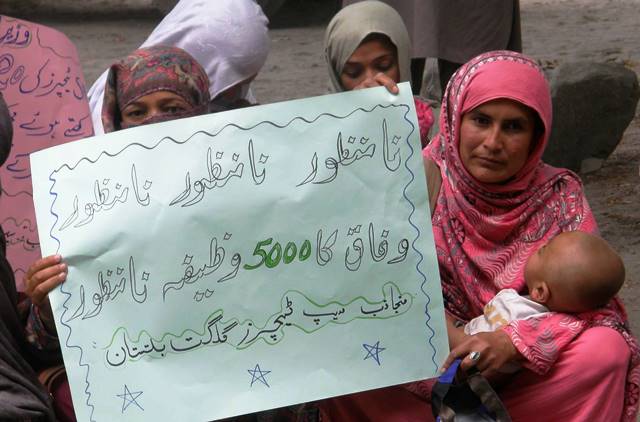 نامنظور نامنظور نامنظور
وفاق کا 5000 وظیفہ نامنظور
منجانب سیپ ٹیچرز گلگت بلتستان
وزیر
ٹیچرز کی